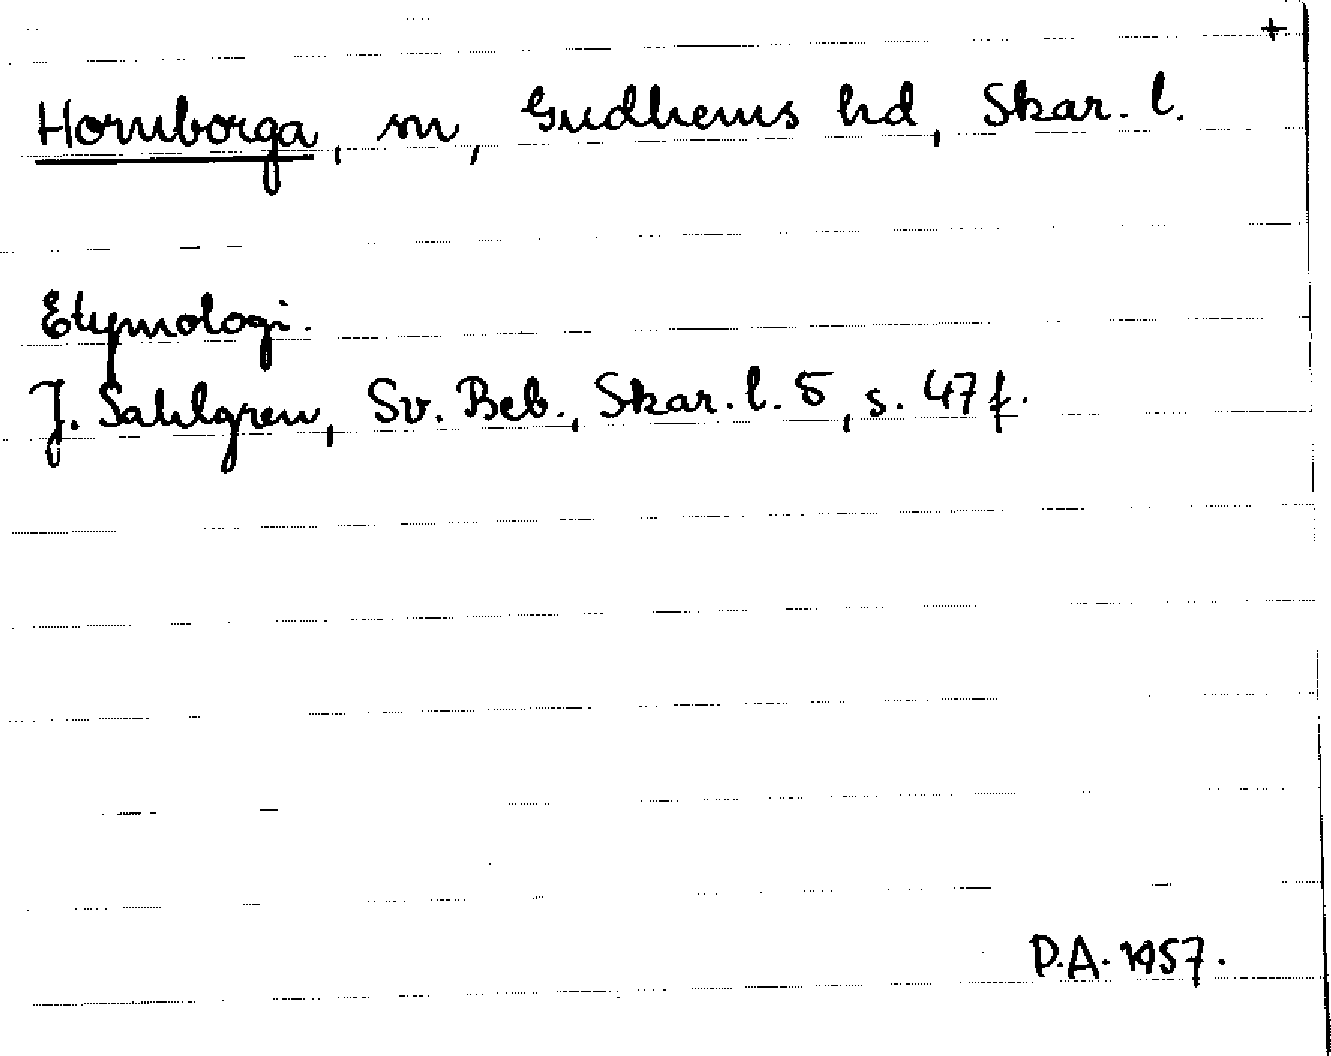 +
Hornborga, sn, Gudhems hd, Skar. l.
Etymologi.
J. Sahlgren, Sv. Beb., Skar. l. 5, s. 47 f.
P.A. 1957.